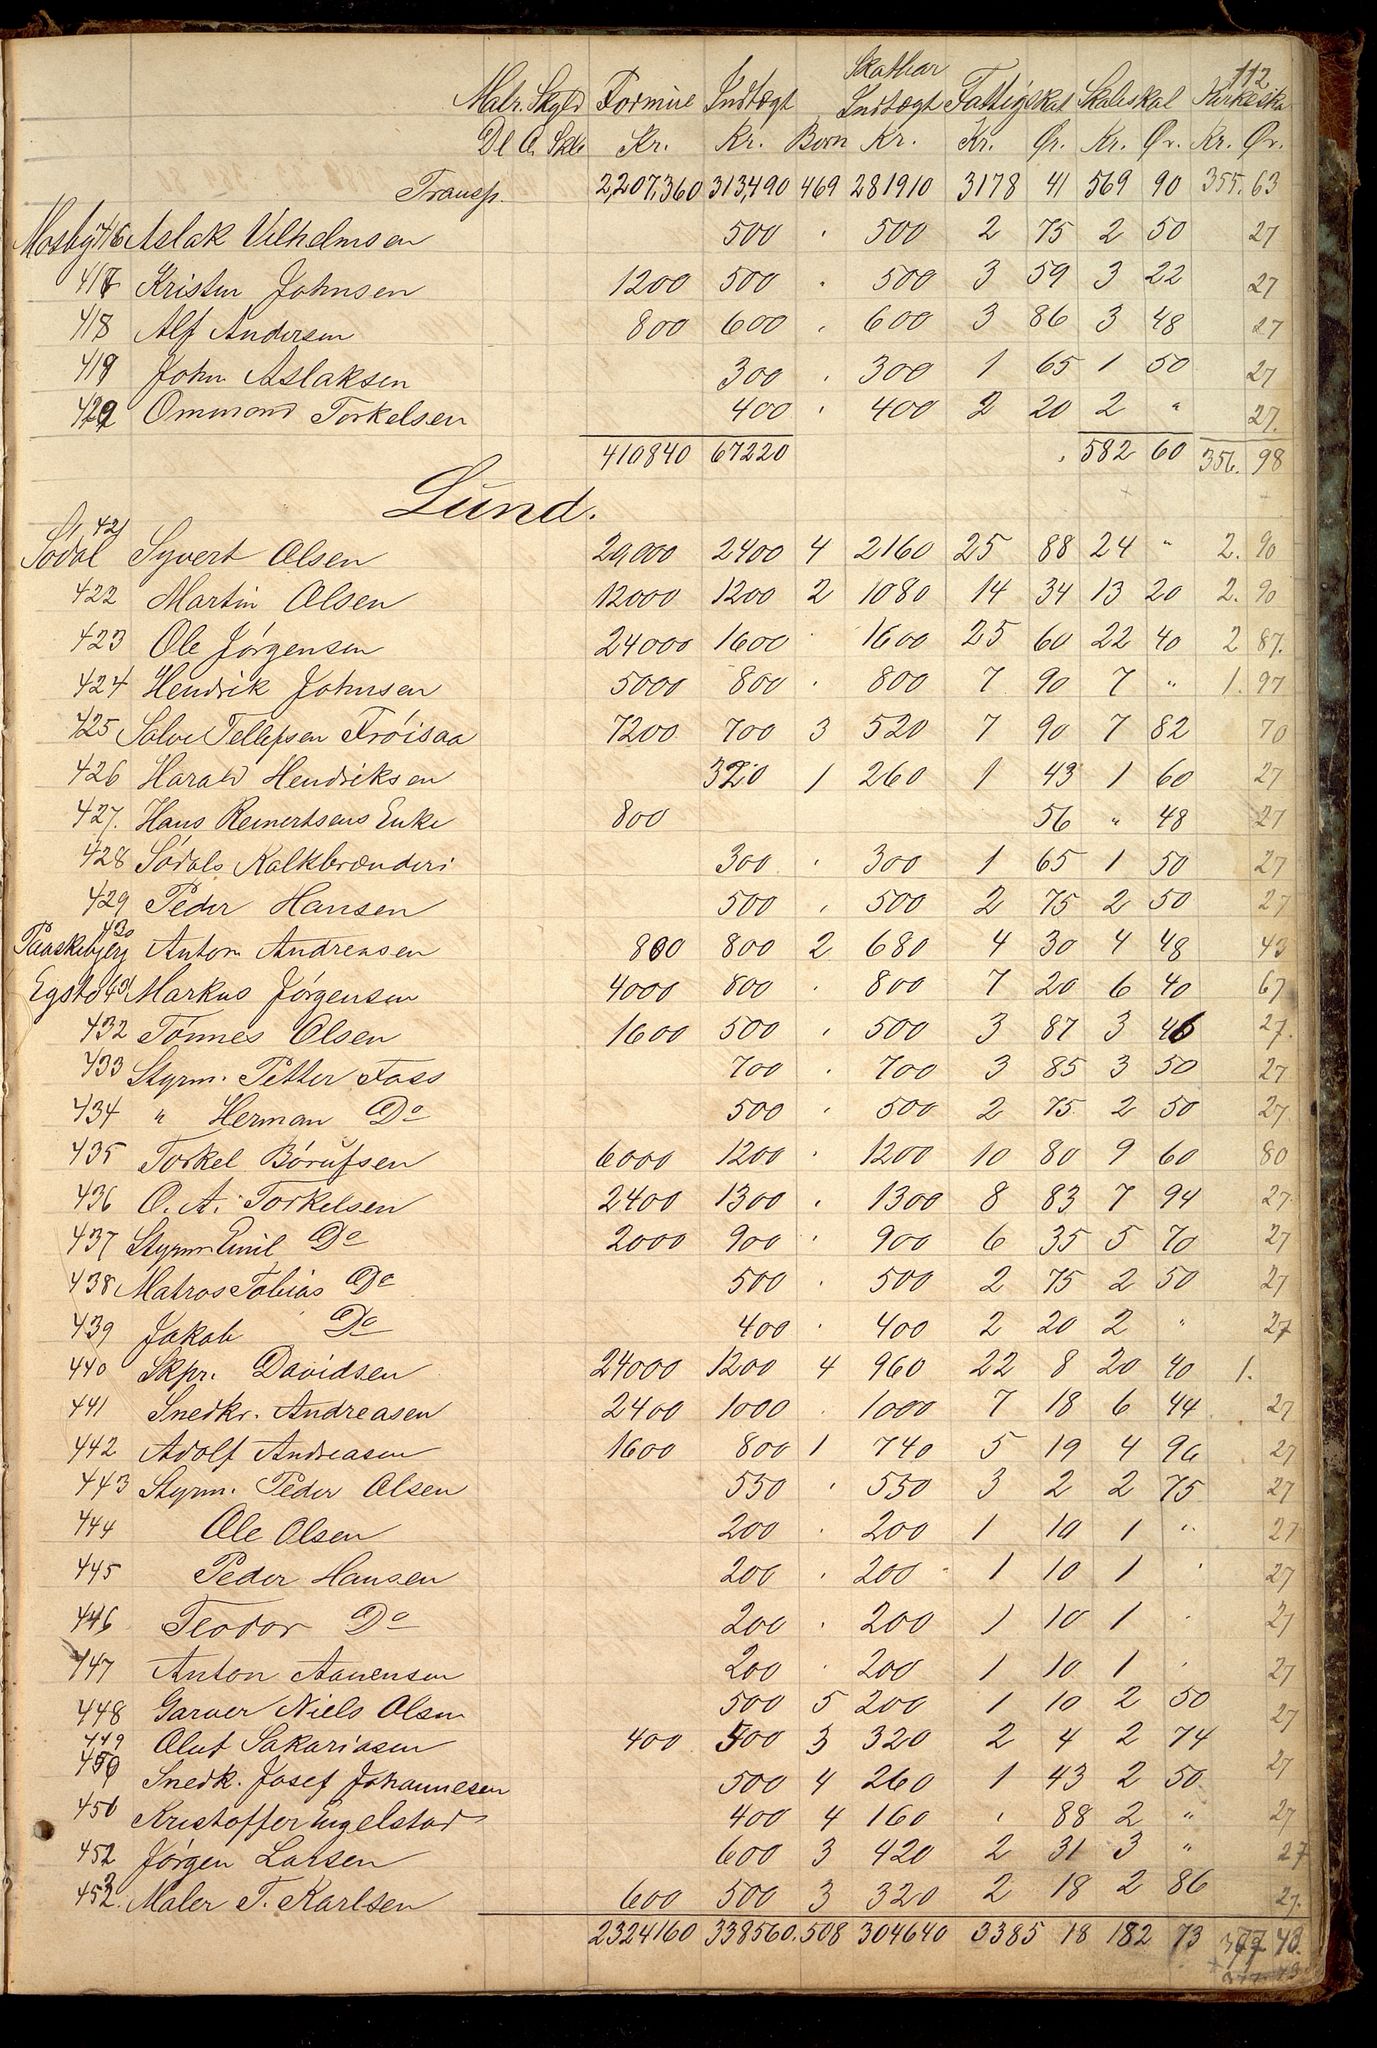 112
Matr. Skyld Formue Indtægt Skatbar Indtægt Fattigskat Skoleskat Kirkesk.
Dl. O. Sk. Kr. Kr. Børn Kr. Kr. Ør. Kr. Ør. Kr. Ør.
Transp. 2,207,360 313,490 469 281910 3178 41 569 90 355. 63
Mosby 416 Aslak Vilhelmsen 500 " 500 2 75 2 50 27
417 Kristen Johnsen 1200 500 " 500 3 59 3 22 27
418 Alf Andersen 800 600 " 600 3 86 3 48 27
419 John Aslaksen 300 " 300 1 65 1 50 27
420 Ommond Torkelsen 400 " 400 2 20 2 " 27.
410840 67220 582 60 356. 98
Lund.
Sødal 421 Syvert Olsen 20,000 2400 4 2160 25 88 24 " 2. 90
422 Martin Olsen 12000 1200 2 1080 14 34 13 20 2. 90
423 Ole Jørgensen 24000 1600 " 1600 25 60 22 40 2 87.
424 Hendrik Johnsen 5000 800 " 800 7 90 7 " 1. 97
425 Salve Tellefsen Frøisaa 7200 700 3 520 7 90 7 82 70
426 Harald Hendriksen 320 1 260 1 43 1 60 27
427. Hans Reinertsens Enke 800 56 " 48 27
428 Sødals Kalkbrænderi 300 " 300 1 65 1 50 27
429 Peder Hansen 500 " 500 2 75 2 50 27
Paaskebjerg 430 Anton Andreasen 800 800 2 680 4 30 4 48 43
Egsto 431 Markus Jørgensen 4000 800 " 800 7 20 6 40 67
432 Tønnes Olsen 1600 500 " 500 3 87 3 46 27.
433 Styrm. Petter Foss 700 " 700 3 85 3 50 27
434 " Herman Do 500 " 500 2 75 2 50 27.
435 Torkel Børufsen 6000 1200 " 1200 10 80 9 60 80
436 O. A. Torkelsen 2400 1300 " 1300 8 83 7 94 27.
437 Styrm Emil Do 2000 900 " 900 6 35 5 70 27
438 Matros Tobias Do 500 " 500 2 75 2 50 27
439 Jakob Do 400 " 400 2 20 2 " 27
440 Skpr. Davidsen 24000 1200 4 960 22 8 20 40 1.
441 Snedkr. Andreasen 2400 1000 " 1000 7 18 6 44 27
442 Adolf Andreasen 1600 800 1 740 5 19 4 96 27
443 Styrm. Peder Olsen 550 " 550 3 2 2 75 27
444 Ole Olsen 200 " 200 1 10 1 " 27
445 Peder Hansen 200 " 200 1 10 1 " 27
446 Teodor Do 200 " 200 1 10 1 " 27
447 Anton Aanensen 200 " 200 1 10 1 " 27
448 Garver Niels Olsen 500 5 200 1 10 2 50 27
449 Oluf Sakariasen 400 500 3 320 2 4 2 74
450 Snedk. Josef Johannesen 500 4 260 1 43 2 50 27
451 Kristoffer Engelstad 400 4 160 " 88 2 " 27
452 Jørgen Larsen 600 3 420 2 31 3 " 27
453. Maler T. Karlsen 600 500 3 320 2 18 2 86 27.
2324160 338560. 508 304640 3385 18 182 73 377 43.